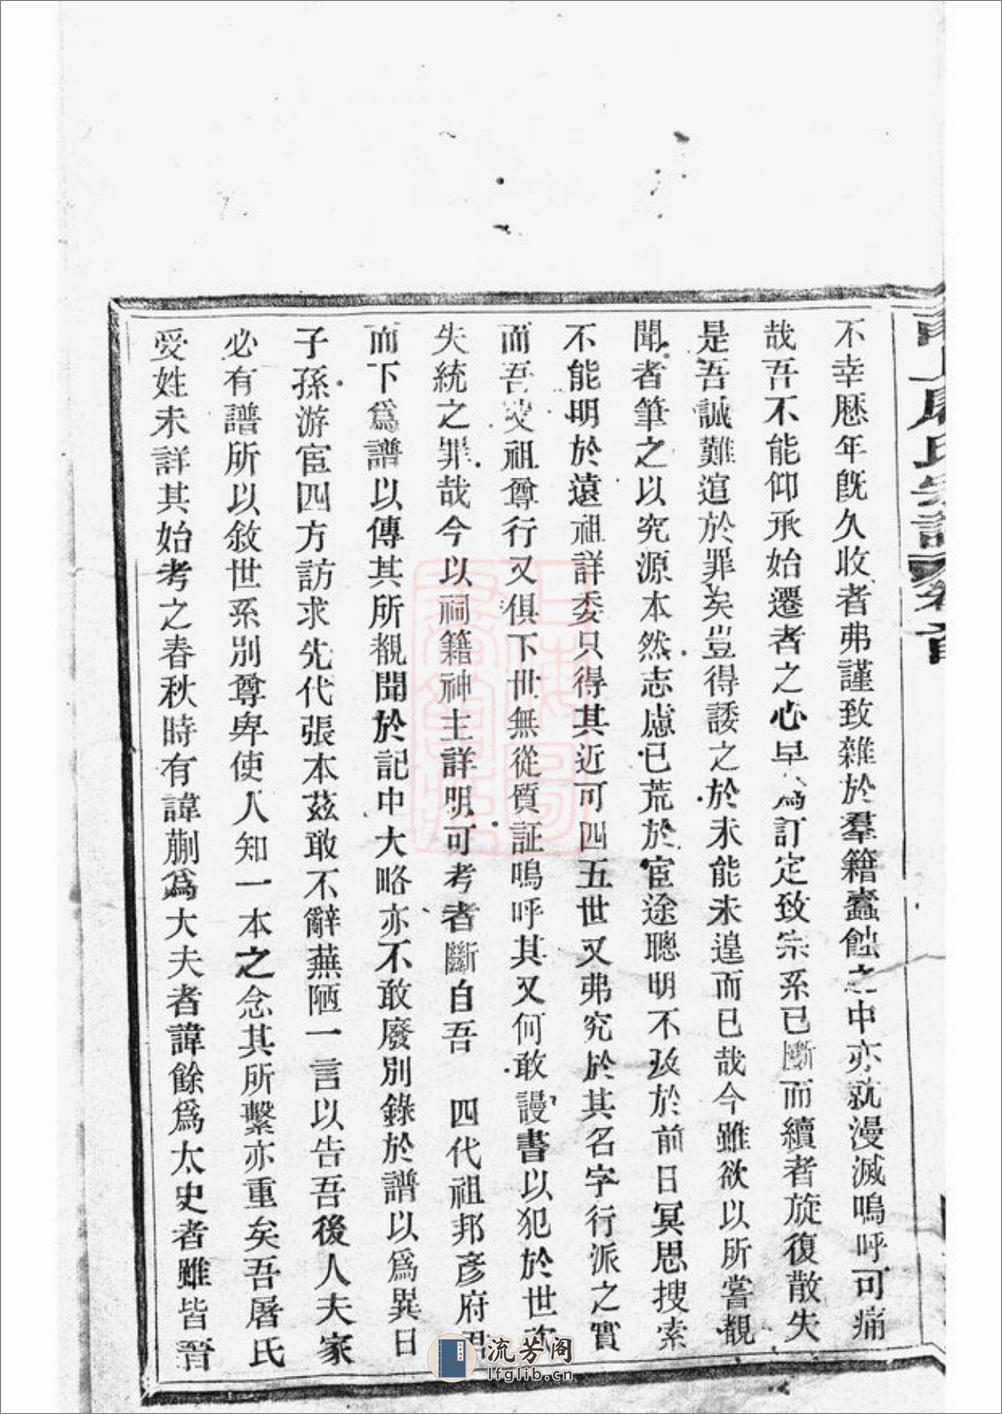 不幸厯年旣久收者弗謹致雜於羣籍蠹蝕之中亦就漫滅嗚呼可痛
哉吾不能仰承始遷者之心早為訂定致宗系已斷而續者旋復散失
是吾誠難逭於罪矣豈得諉之於未能未遑而已哉今雖欲以所嘗覩
聞者筆之以究源本然志慮已荒於宦途聰明不及於前日冥思搜索
不能明於遠祖詳委只得其近可四五世又弗究於其名字行派之實
而吾父祖尊行又俱下世無從質証嗚呼其又何敢謾書以犯於世次
失統之罪哉今以祠籍神主詳明可考者斷自吾 四代祖邦彥府君
而下爲譜以傳其所覩聞於記中大略亦不敢廢別錄於譜以爲異日
子孫游宦四方訪求先代張本茲敢不辭蕪陋一言以告吾後人夫家
必有譜所以敘世系別尊卑使人知一本之念其所繫亦重矣吾屠氏
受姓未詳其始考之春秋時有諱蒯爲大夫者諱餘爲太史者雖皆晉
流芳阁
lfglib.cn